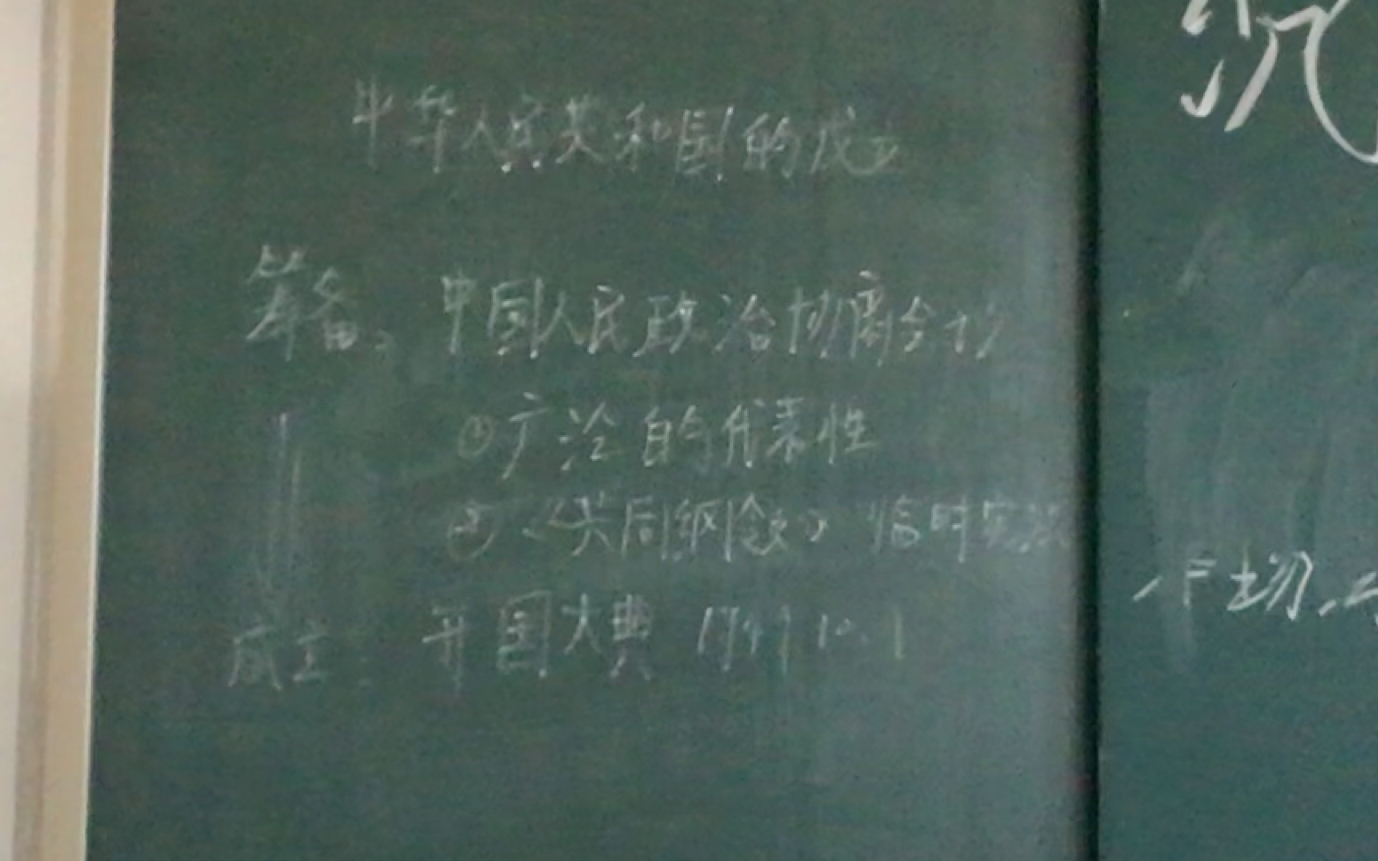 中华人民共和国的成立
筹备: 中国人民政治协商会议
①广泛的代表性
②《共同纲领》 临时宪法
成立: 开国大典 1949 10.1